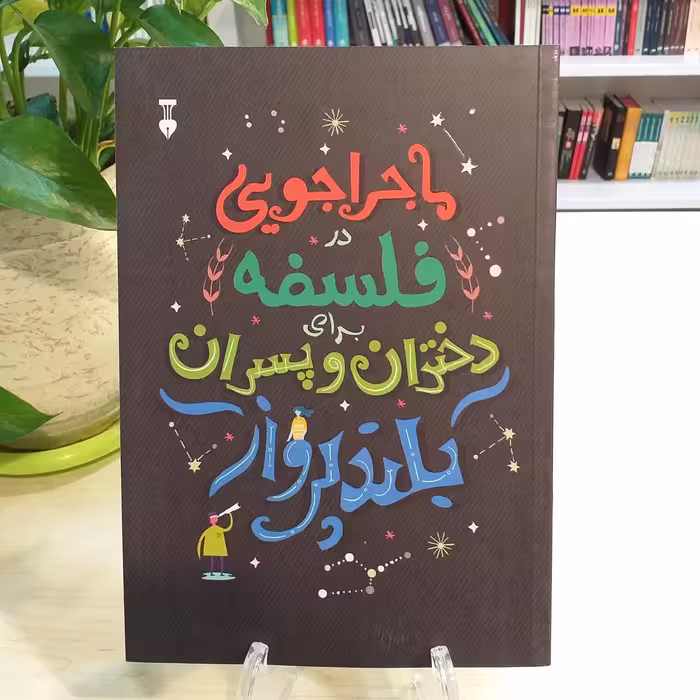 ماجراجویی
در
فلسفه
برای
دختران و پسران
بلندپرواز